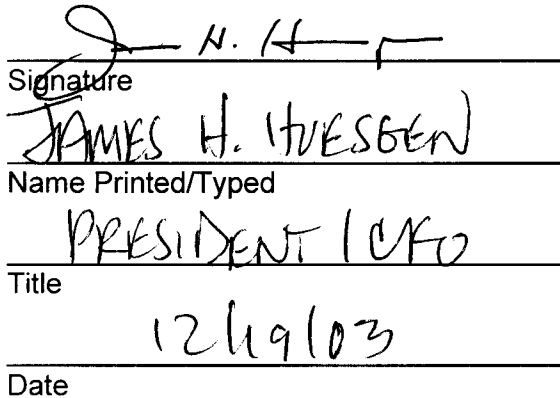 J H. H
Signature
JAMES H. HUESGEN
Name Printed/Typed
PRESIDENT / CFO
Title
12/19/03
Date